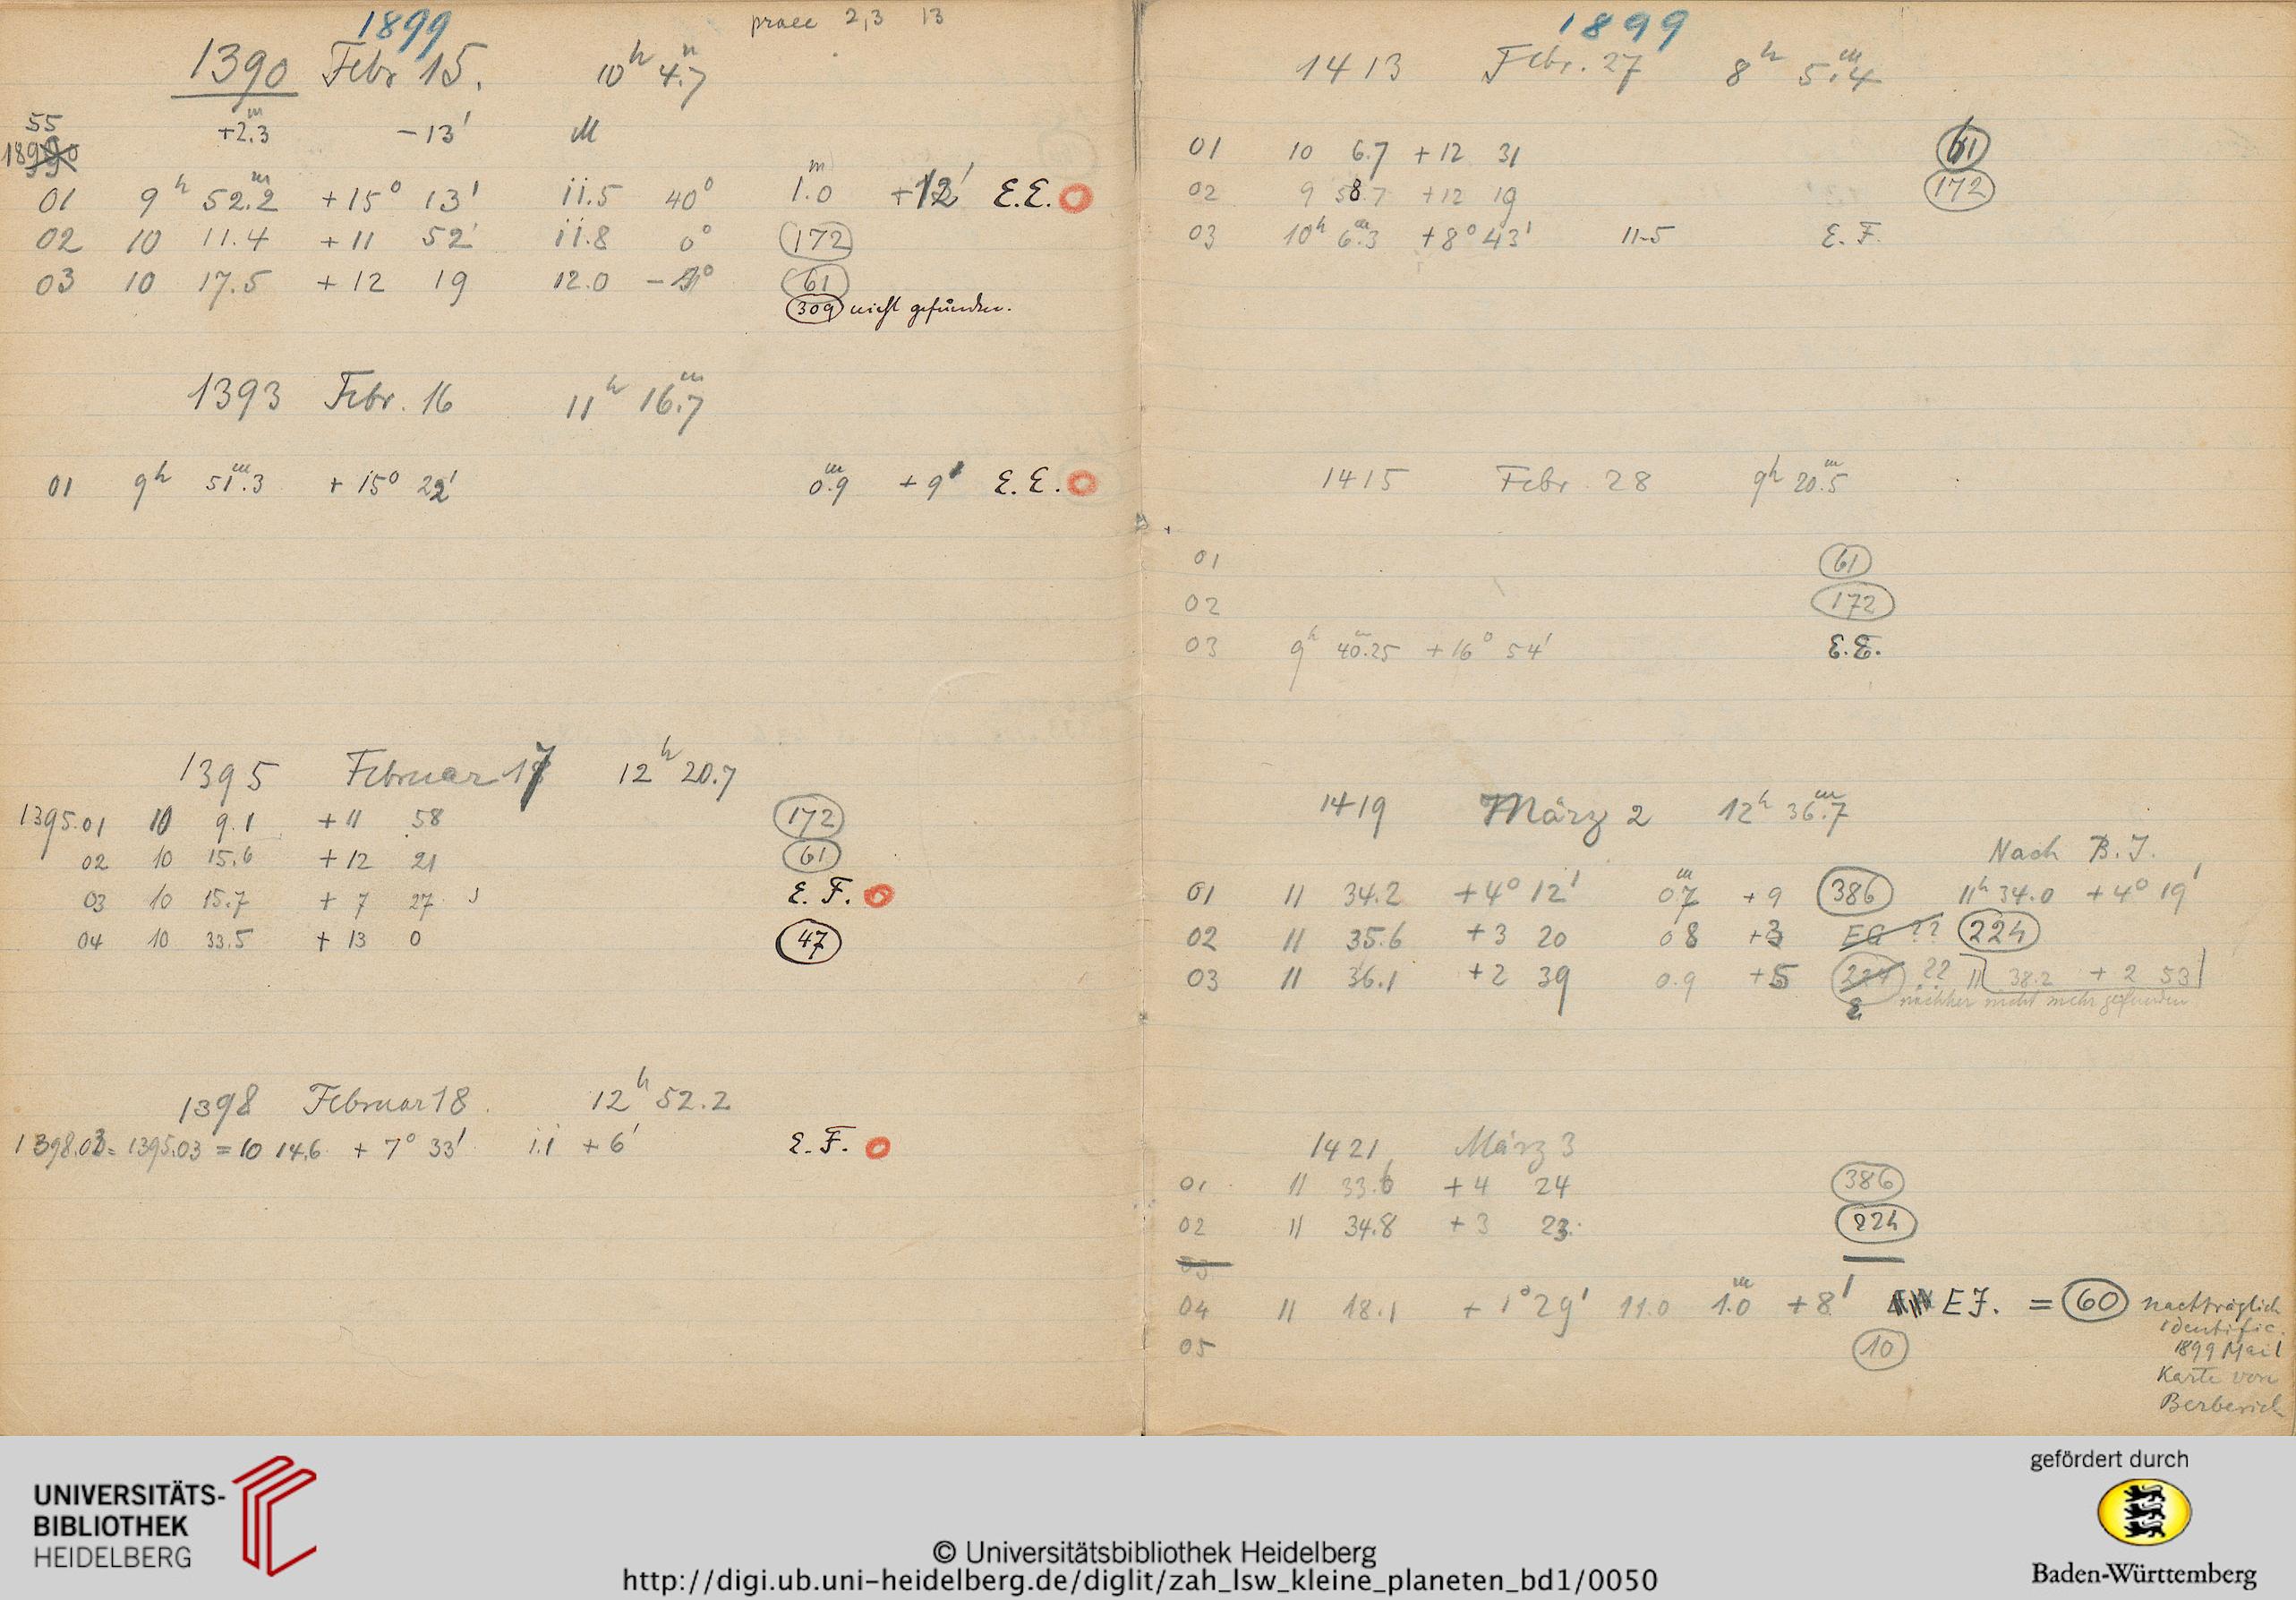 1899
praec 2,3 13
1390 Febr 15. 10h 4.7m
55 +2.3m −13' M
01 9h 52.2m +15° 13' 11.5 40° 1.0m +12' E.E.
02 10 11.4 +11 52' 11.8 0° 172
03 10 17.5 +12 19 12.0 61
309 nicht gefunden.
1393 Febr. 16 11h 16.7m
01 9h 51.3m +15° 22' 0.9m +9' E.E.
1395 Februar 17 12h 20.7
1395.01 10 9.1 +11 58 172
02 10 15.6 +12 21 61
03 10 15.7 +7 27 E.F.
04 10 33.5 +13 0 47
1398 Februar 18. 12h 52.2
1398.03 = 1395.03 = 10 14.6 +7° 33' 1.1 +6' E.F.
1899
1413 Febr. 27 8h 5.4m
01 10 6.7 +12 31 61
02 9 58.7 +12 19 172
03 10h 6.3m +8° 43' 11.5 E.F.
1415 Febr. 28 9h 20.5m
01 61
02 172
03 9h 40.25m +16° 54' E.E.
1419 März 2 12h 36.7m
Nach B.J.
01 11 34.2 +4° 12' 0.7m +9 386 11h 34.0 +4° 19'
02 11 35.6 +3 20 0.8 +3 EG ?? 224
03 11 36.1 +2 39 0.9 +5 224 ?? 11 38.2 +2 53
nachher nicht mehr gefunden
1421 März 3
01 11 33.6 +4 24 386
02 11 34.8 +3 23. 224
03
04 11 18.1 +1° 29' 11.0 1.0m +8' EJ. = 60 nachträglich
identific.
05 10 1899 Mai 1
Karte von
Berberich
UNIVERSITÄTS-
BIBLIOTHEK
HEIDELBERG
gefördert durch
Baden-Württemberg
© Universitätsbibliothek Heidelberg
http://digi.ub.uni-heidelberg.de/diglit/zah_lsw_kleine_planeten_bd1/0050